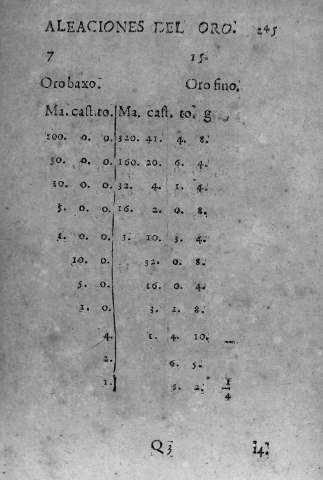 ALEACIONES DEL ORO. 245
7 15.
Oro baxo. Oro fino.
Ma. cast. to. Ma. cast. to. g
100. 0. 0. 320. 41. 4. 8.
50. 0. 0. 160. 20. 6. 4.
10. 0. 0. 32. 4. 1. 4.
5. 0. 0. 16. 2. 0. 8.
1. 0. 0. 3. 10. 3. 4.
10. 0. 32. 0. 8.
5. 0. 16. 0. 4.
1. 0. 3. 1. 8.
4. 1. 4. 10.
2. 6. 5.
1. 3. 2. 1/4
Q3 14.